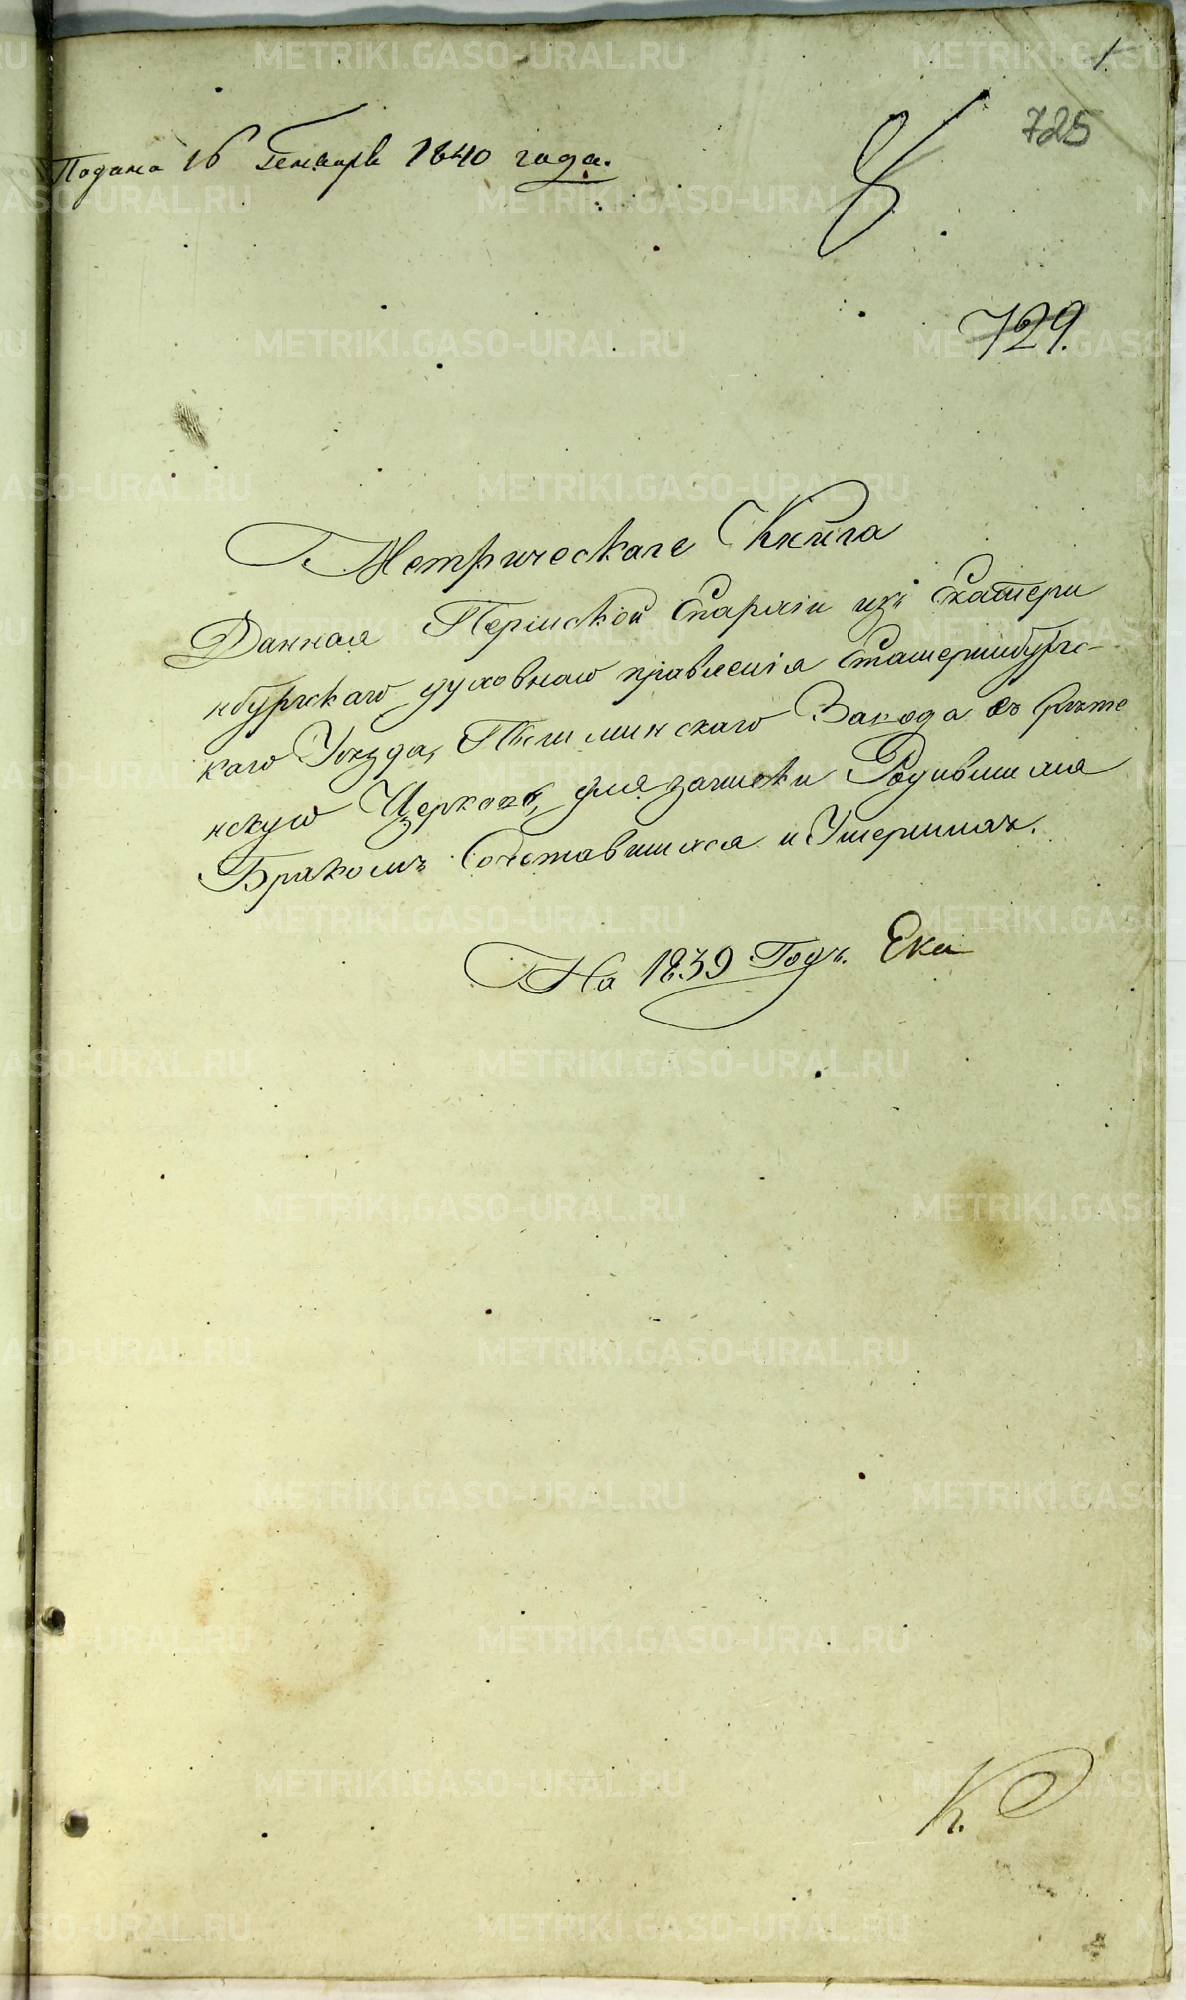 1
725
Подана 16 Генваря 1840 года.
729.
Метрическаге Книга
Данная Пермской Епархіи изъ Екатери
нбургскаго духовнаго правленія Екатеринбургс-
каго Уезда, Пышминскаго Завода въ Богое
нскую Церковь, для записки Родившихся
Бракомъ Сочетавшихся и Умершихъ.
На 1839 Годъ. Ека
К.